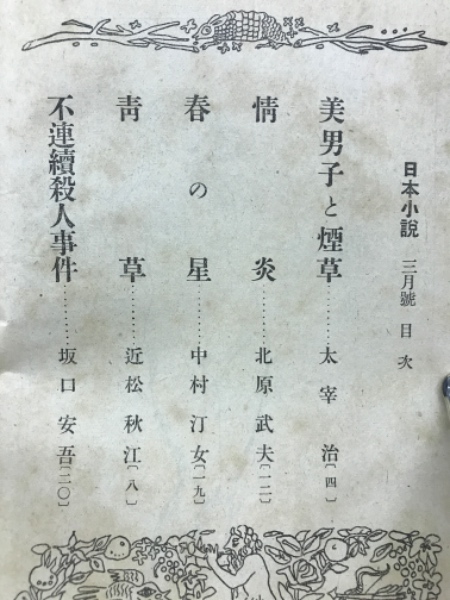 日本小說 三月號 目次
美男子と煙草………太宰 治〔四〕
情炎………北原武夫〔一二〕
春の星………中村汀女〔一九〕
靑草………近松秋江〔八〕
不連續殺人事件………坂口安吾〔二〇〕